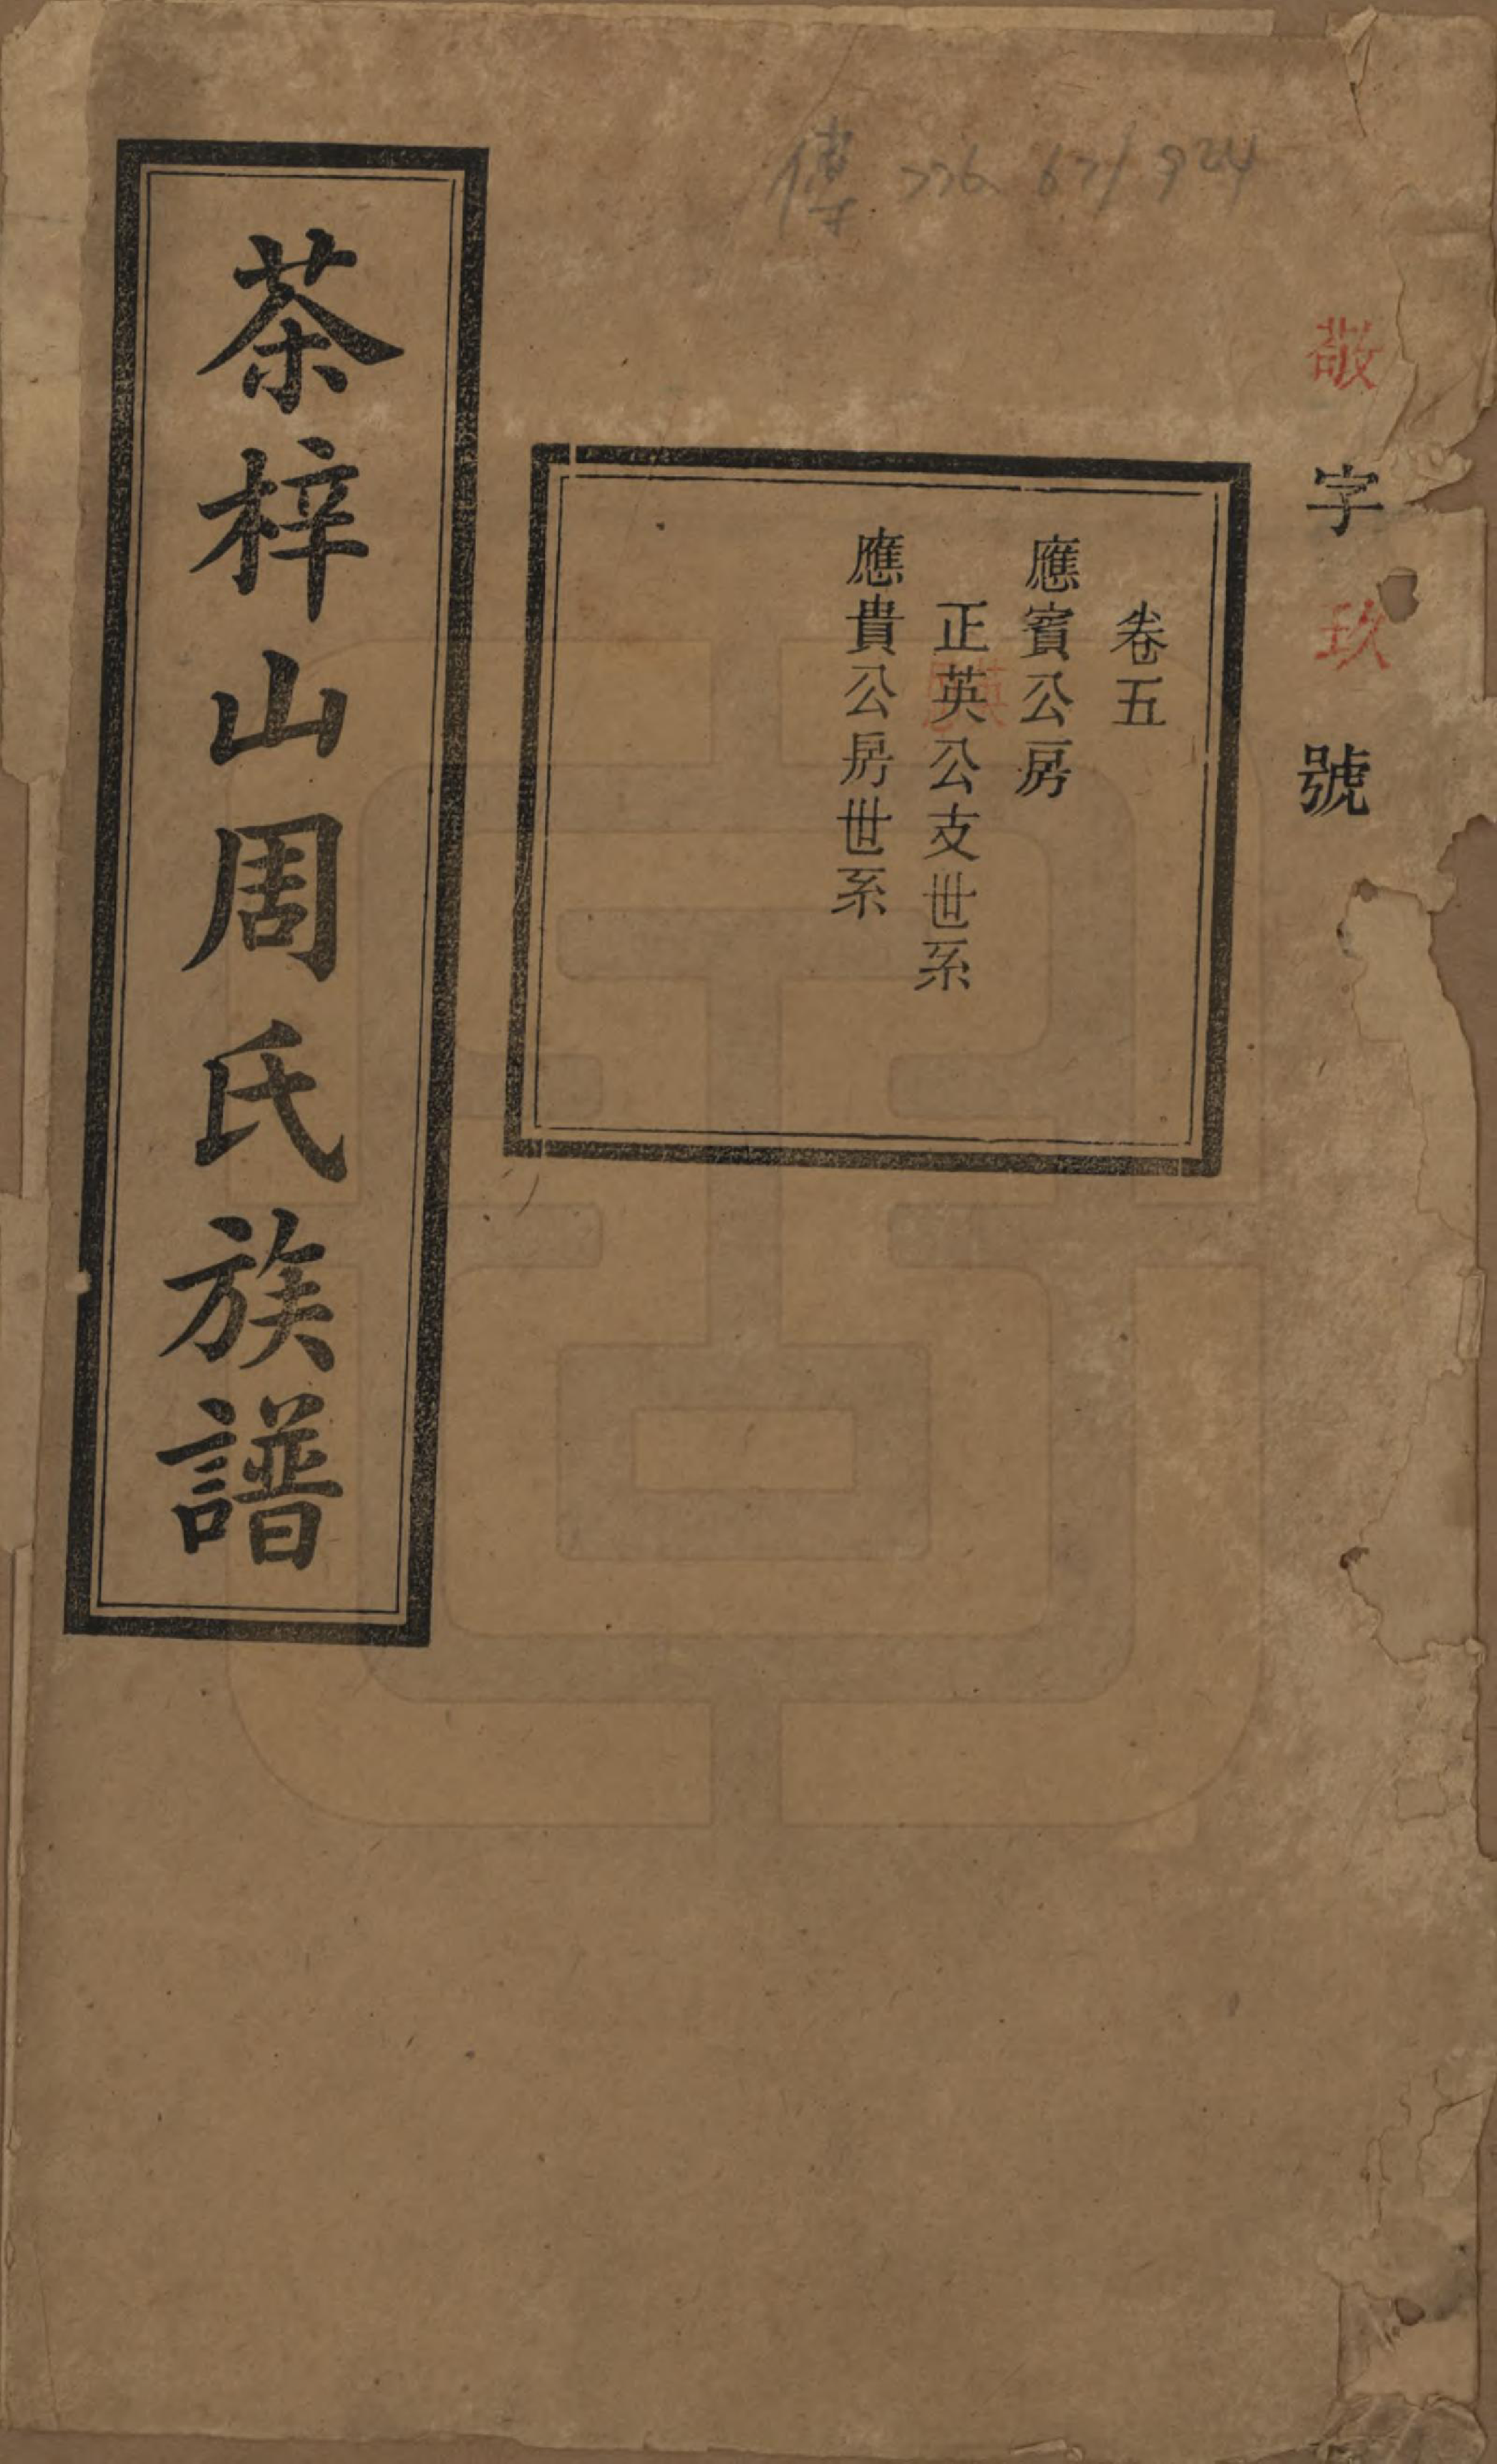 傳 776.671 924
敬字玖號
卷五
應賓公房
正英公支世系
應貴公房世系
茶梓山周氏族譜